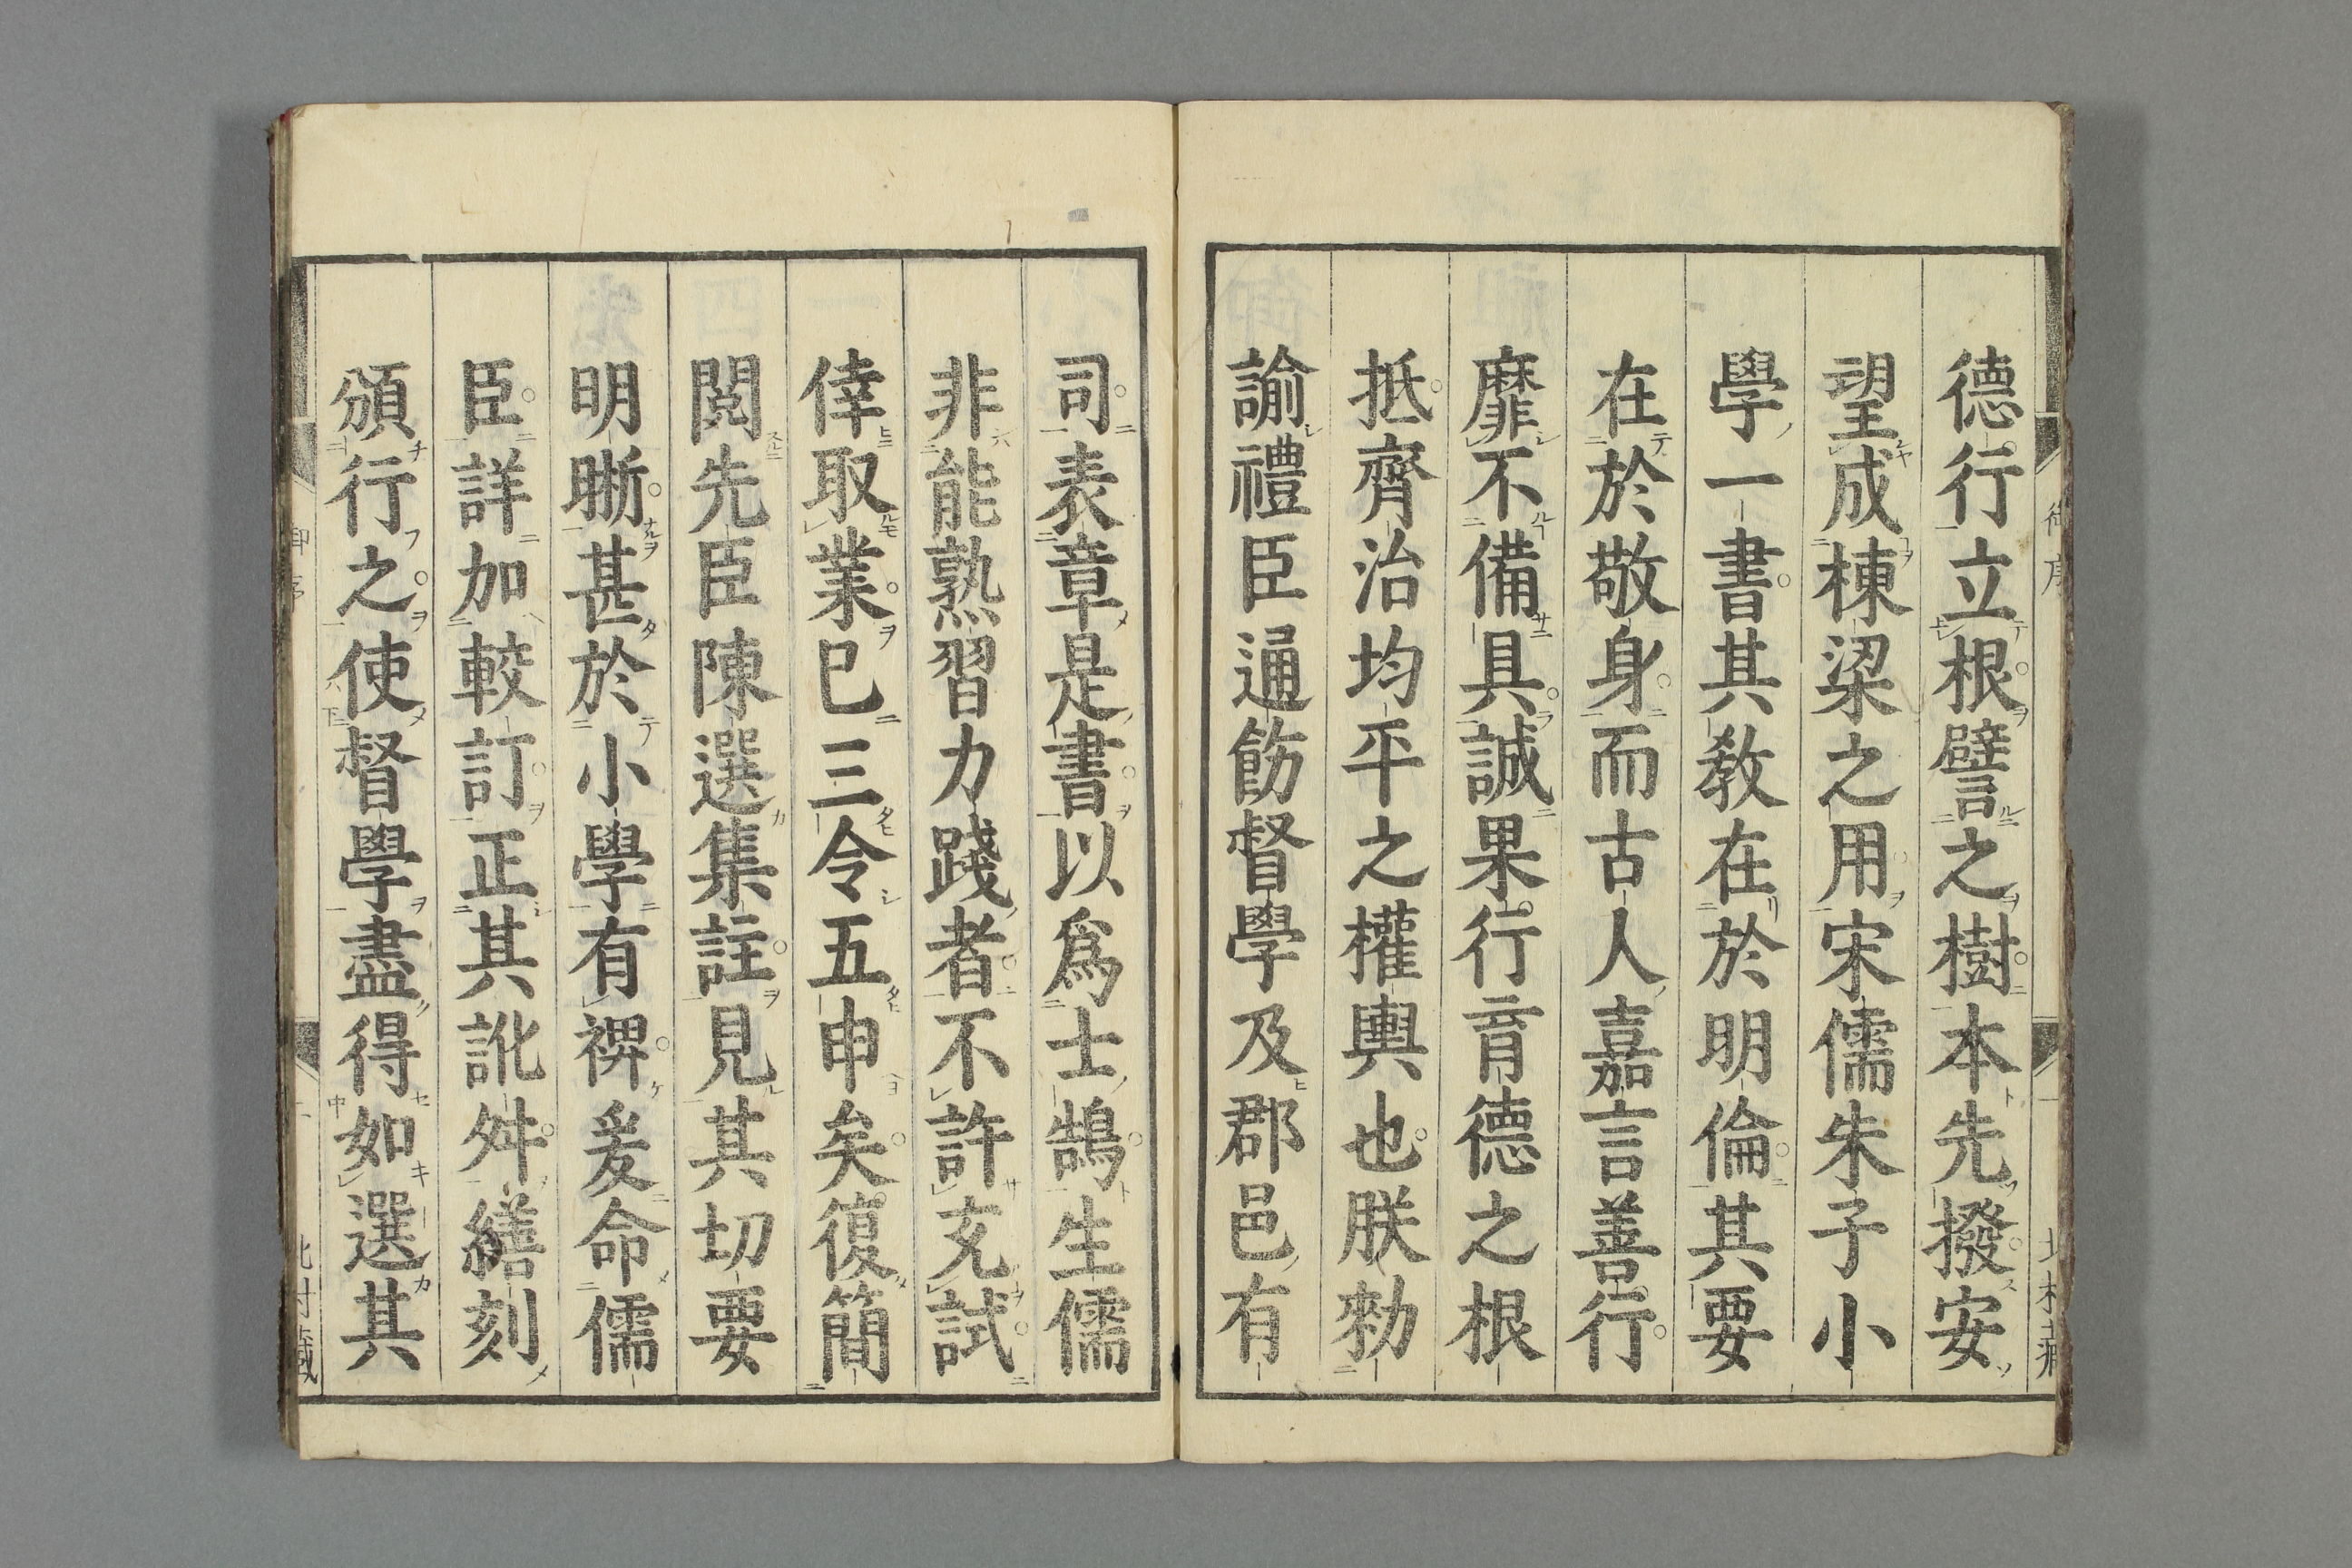 德行立根譬之樹本先撥安
望成棟梁之用宋儒朱子小
學一書其敎在於明倫其要
在於敬身而古人嘉言善行
靡不備具誠果行育德之根
抵齊治均平之權輿也朕勑
諭禮臣通飭督學及郡邑有
司表章是書以爲士鵠生儒
非能熟習力踐者不許充試
倖取業已三令五申矣復簡
閱先臣陳選集註見其切要
明晣甚於小學有裨爰命儒
臣詳加較訂正其訛舛繕刻
頒行之使督學盡得如選其